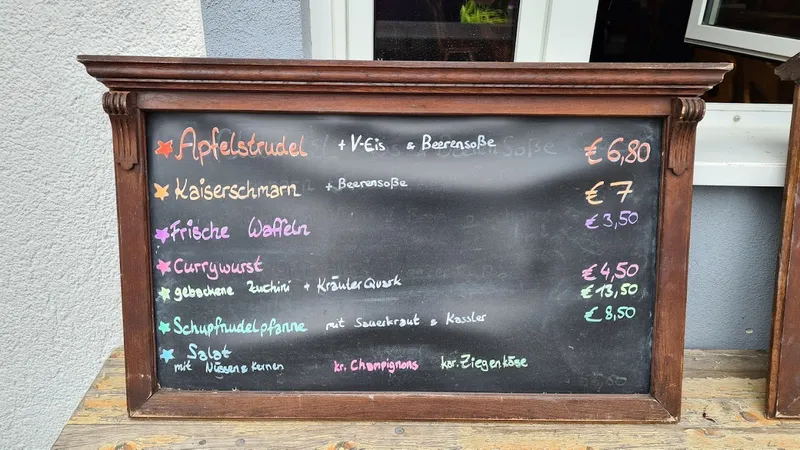 Apfelstrudel + V-Eis & Beerensoße € 6,80
Kaiserschmarn + Beerensoße € 7
Frische Waffeln € 3,50
Currywurst € 4,50
gebackene Zuchini + Kräuter Quark € 13,50
Schupfnudelpfanne mit Sauerkraut & Kassler € 8,50
Salat
mit Nüssen & Kernen kr. Champignons kar. Ziegenkäse